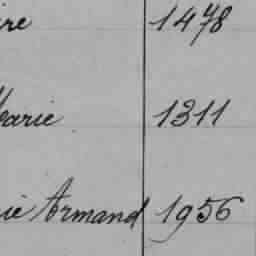 ire 1478
Marie 1311
ie Armand 1956